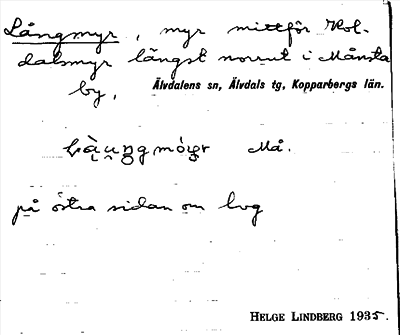 Långmyr, myr mittför Kol-
dalsmyr längst norrut i Månsta
by,
Älvdalens sn, Älvdals tg, Kopparbergs län.
Må.
på östra sidan om lvg
HELGE LINDBERG 1935.